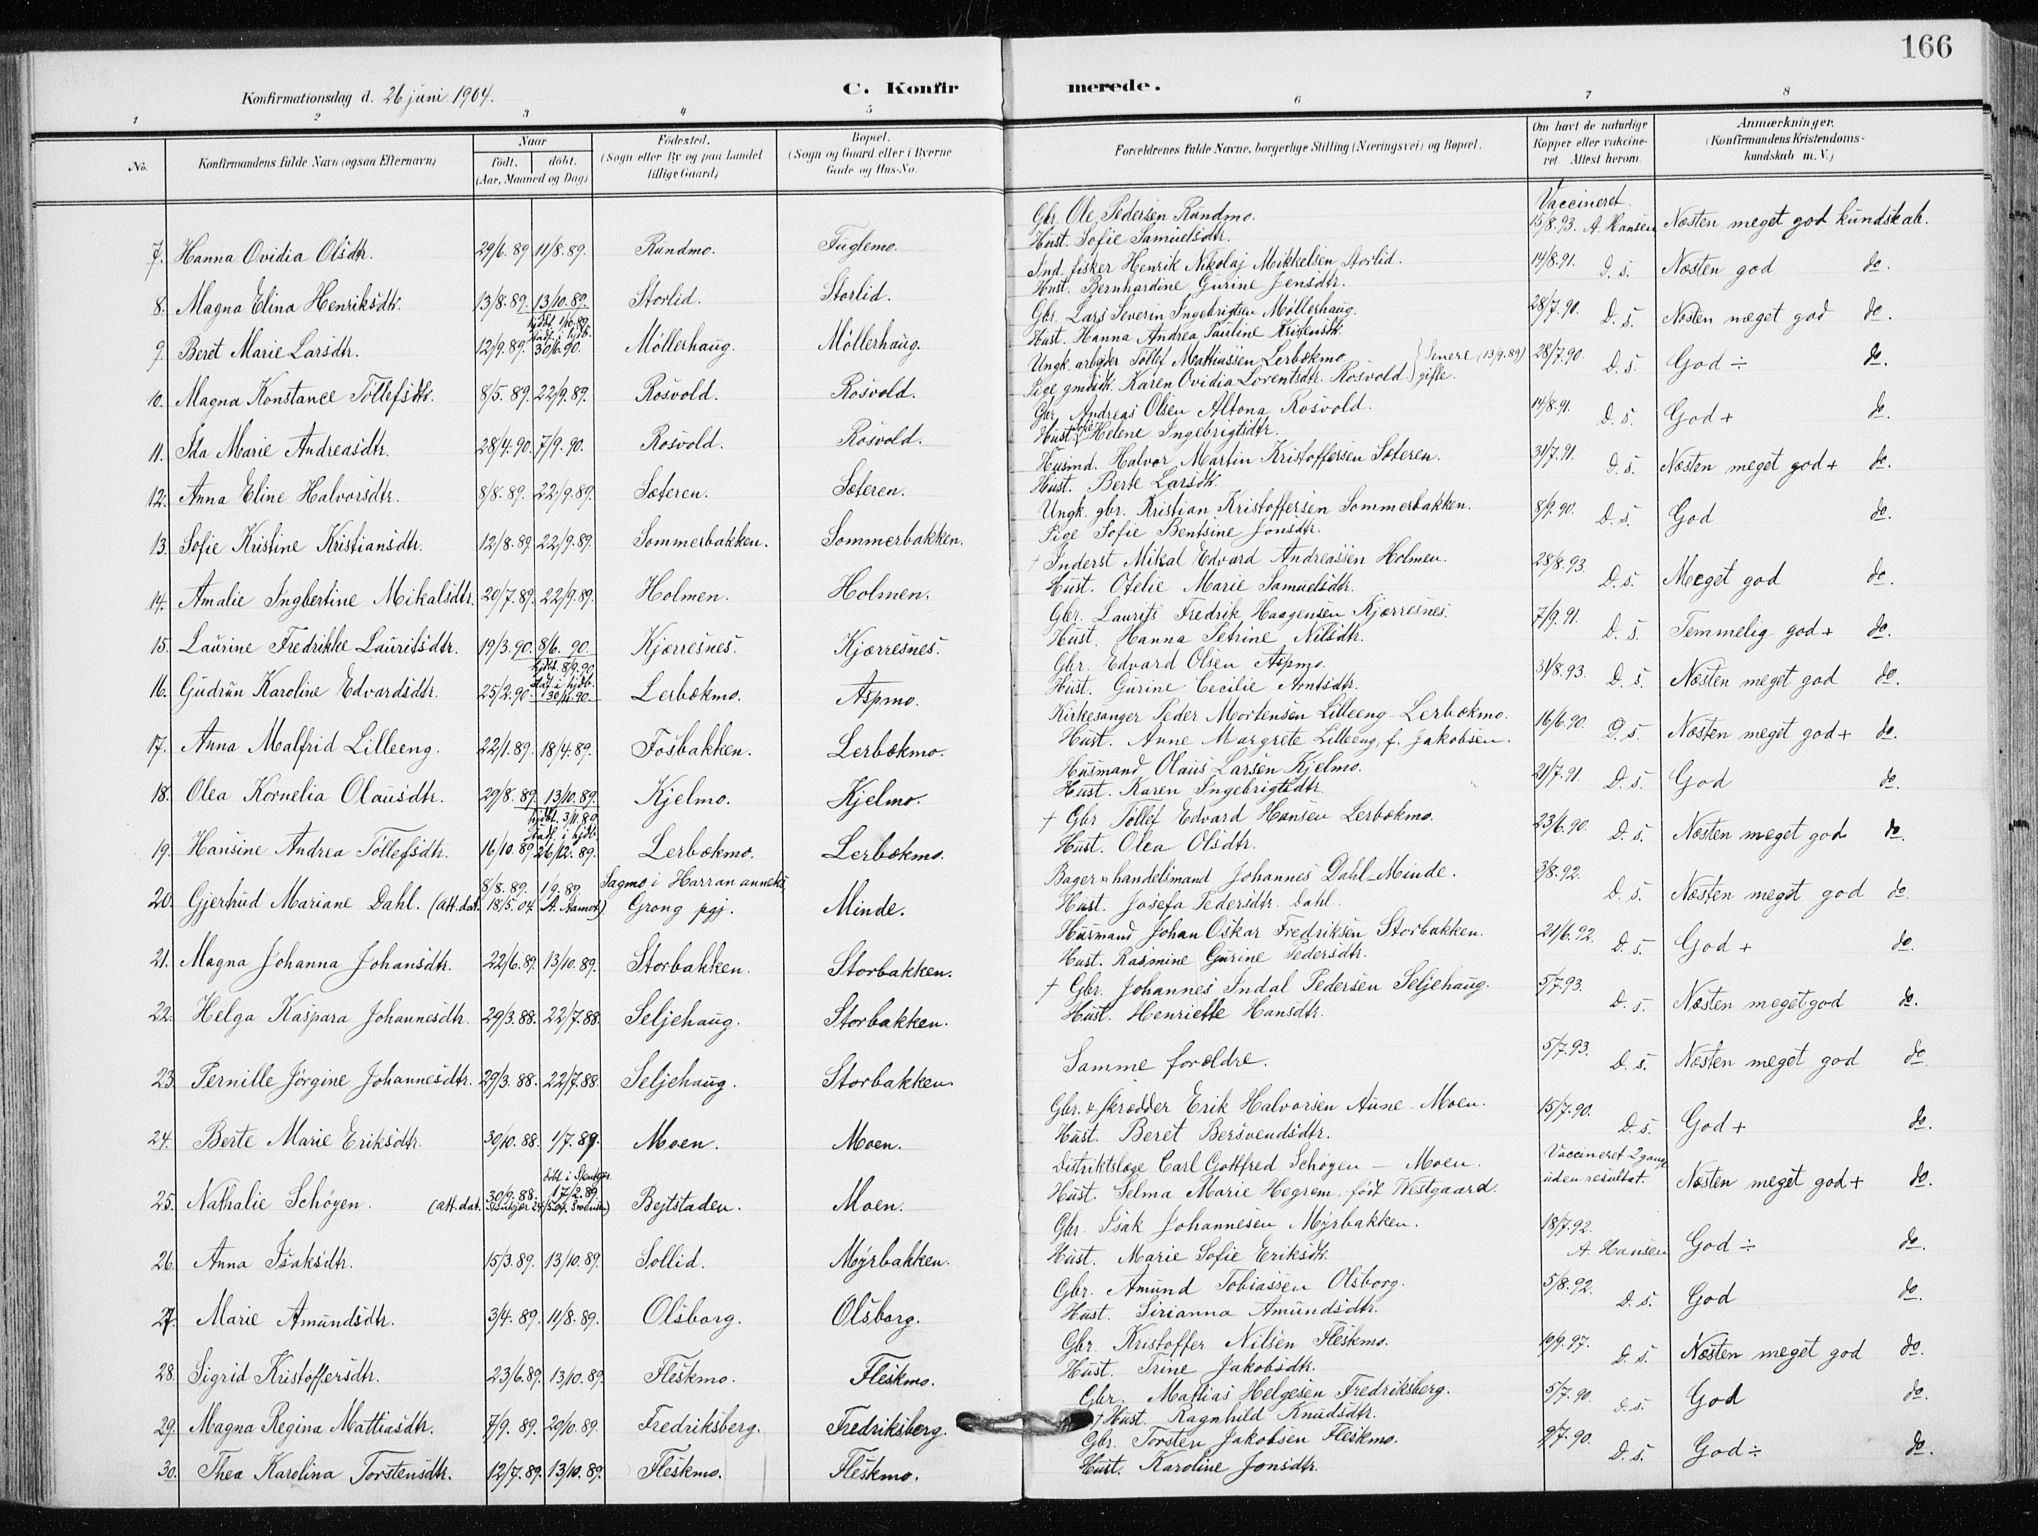 166
Konfirmationsdag d. 26 juni 1904.
C. Konfirmerede.
1 2 3 4 5 6 7 8
No. Konfirmandens fulde Navn (ogsaa Efternavn) Naar født. døbt. (Aar, Maaned og Dag) Fødested. (Sogn eller By og paa Landet tillige Gaard) Bopæl. (Sogn og Gaard eller i Byerne Gade og Hus-No. Forældrenes fulde Navne, borgerlige Stilling (Næringsvei) og Bopæl. Om havt de naturlige Kopper eller vakcineret. Attest herom. Anmærkninger. (Konfirmandens Kristendomskundskab m. V.)
7. Hanna Ovidia Olsdtr. 29/6.89. 11/8.89. Rundmo. Fuglemo. Gbr. Ole Pedersen Rundmo. Hust. Sofie Samuelsdtr. Vaccineret. 15/8.93. A. Hansen Næsten meget god kundskab.
8. Magna Elina Henriksdtr. 13/8.89. 13/10.89. Storlid. Storlid. Ind. fisker Henrik Nikolaj Mikkelsen Storlid. Hust. Bernhardine Gurine Jensdtr. 14/8.91. D. s. Næsten god do.
9. Beret Marie Larsdtr. 12/9.89. hjdbt. 1/10.89. stadf. i hjdb. 30/6.90. Møllerhaug. Møllerhaug. Gbr. Lars Severin Ingebrigtsen Møllerhaug. Hust. Hanna Andrea Pauline Kristensdtr. 28/7.90. D. s. Næsten meget god do.
10. Magna Konstance Tøllefsdtr. 8/5.89. 22/9.89. Rosvold. Rosvold. Ungk. arbejder Tøllef Mattiassen Lerbækmo Pige gmdsdtr. Karen Ovidia Lorentsdtr. Rosvold } Senere (13/9.89) gifte. 28/7.90. D. s. God ÷ do.
11. Ida Marie Andreasdtr. 28/4.90. 7/9.90. Rosvold. Rosvold. Gbr. Andreas Olsen Altona Rosvold. Hust. Sofie Helene Ingebrigtsdtr. 14/8.91. D. s. God + do.
12. Anna Eline Halvorsdtr. 8/8.89. 22/9.89. Sæteren. Sæteren. Husmd. Halvor Martin Kristoffersen Sæteren. Hust. Berte Larsdtr. 31/7.91. D. s. Næsten meget god + do.
13. Sofie Kristine Kristiansdtr. 12/8.89. 22/9.89. Sommerbakken. Sommerbakken. Ungk. gbr. Kristian Kristoffersen Sommerbakken. Pige Sofie Bentsine Jonsdtr. 8/9.90. D. s. God do.
14. Amalie Ingbertine Mikalsdtr. 20/7.89. 22/9.89. Holmen. Holmen. † Inderst Mikal Edvard Andreassen Holmen. Hust. Ofelie Marie Samuelsdtr. 28/8.93. D. s. Meget god do.
15. Laurine Fredrikke Lauritsdtr. 19/3.90. 8/6.90. Kjærresnes. Kjærresnes. Gbr. Laurits Fredrik Haagensen Kjærresnes. Hust. Hanna Petrine Nilsdtr. 7/9.91. D. s. Temmelig god + do.
16. Gudrun Karoline Edvardsdtr. 25/2.90. hjdbt. 8/9.90 stadf. i hjdb. 30/11.90. Lerbækmo. Aspmo. Gbr. Edvard Olsen Aspmo. Hust. Gurine Cecilie Arntsdtr. 31/8.93. D. s. Næsten meget god do.
17. Anna Malfrid Lilleeng. 22/1.89. 18/4.89. Fosbakken. Lerbækmo. Kirkesanger Peder Mortensen Lilleeng-Lerbækmo. Hust. Anne Margrete Lilleeng, f. Jakobsen. 16/6.90. D. s. Næsten meget god + do.
18. Olea Kornelia Olausdtr. 29/8.89. 13/10.89. Kjelmo. Kjelmo. Husmand Olaus Larsen Kjelmo. Hust. Karen Ingebrigtsdtr. 21/7.91. D. s. God do.
19. Hansine Andrea Tøllefsdtr. 16/10.89 hjdbt. 3/11.89. stadf. i hjdb. 26/12.89. Lerbækmo. Lerbækmo. † Gbr. Tøllef Edvard Hansen Lerbækmo. Hust. Olea Olsdtr. 23/6.90. D. s. Næsten meget god do.
20. Gjertrud Mariane Dahl. (Att. dat. 18/5.04. A. Aamot) 8/8.89. 1/9.89. Sagmo i Harran annex Grong pgj. Minde. Bager & handelsmand Johannes Dahl-Minde. Hust. Josefa Pedersdtr. Dahl. 3/8.92. D. s. Næsten meget god do.
21. Magna Johanna Johansdtr. 22/6.89. 13/10.89. Storbakken. Storbakken. Husmand Johan Oskar Fredriksen Storbakken. Hust. Rasmine Gurine Pedersdtr. 21/6.92. D. s. God + do.
22. Helga Kaspara Johannesdtr. 29/3.88. 22/7.88. Seljehaug. Storbakken. † Gbr. Johannes Indal Pedersen Seljehaug. Hust. Henriette Hansdtr. 5/7.93. D. s. Næsten meget god do.
23. Pernille Jørgine Johannesdtr. 29/3.88. 22/7.88. Seljehaug. Storbakken. Samme forældre. 5/7.93. D. s. Næsten meget god do.
24. Berte Marie Eriksdtr. 30/10.88. 1/7.89. Moen. Moen. Gbr. & skrædder Erik Halvorsen Aune-Moen. Hust. Beret Bersvendsdtr. 15/7.90. D. s. God + do.
25. Nathalie Schøyen. (Att. dat. 30/9.88. 17/2.89. Bejtstaden. Moen. Distriktslæge Carl Gottfred Schøyen — Moen. Hust. Selma Marie Hegrem, født Westgaard. Vaccineret 2 gange uden resultat. Næsten meget god + do.
26. Anna Isaksdtr. 15/3.89. 13/10.89. Sollid. Myrbakken. Gbr. Isak Johannesen Myrbakken. Hust. Marie Sofie Eriksdtr. 18/7.92. A. Hansen God ÷ do.
27. Marie Amundsdtr. 3/4.89. 11/8.89. Olsborg. Olsborg. Gbr. Amund Tobiassen Olsborg. Hust. Sirianna Amundsdtr. 5/8.92. D. s. God do.
28. Sigrid Kristoffersdtr. 23/6.89. 13/10.89. Fleskmo. Fleskmo. Gbr. Kristoffer Nilsen Fleskmo. Hust. Trine Jakobsdtr. 10/9.97. D. s. Næsten meget god do.
29. Magna Regina Mattiasdtr. 7/9.89. 20/10.89. Fredriksberg. Fredriksberg. Gbr. Mattias Helgesen Fredriksberg. † Hust. Ragnhild Knudsdtr. 5/7.90. D. s. God do.
30. Thea Karolina Torstensdtr. 12/7.89. 13/10.89. Fleskmo. Fleskmo. Gbr. Torsten Jakobsen Fleskmo. Hust. Karoline Jonsdtr. 9/7.90. D. s. God ÷ do.